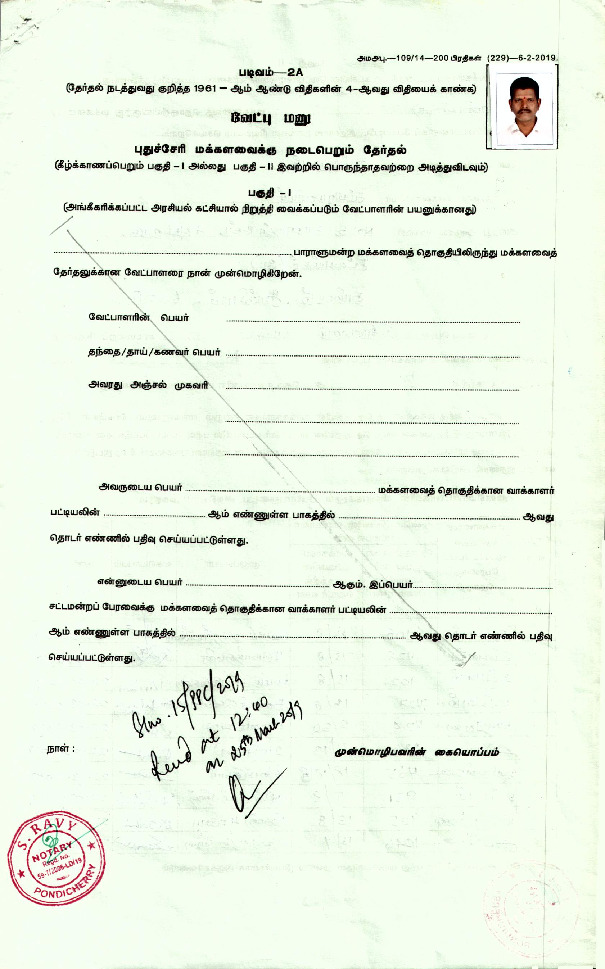 அமஅபு.—109/14—200 பிரதிகள் (229)—6-2-2019.
படிவம்—2A
(தேர்தல் நடத்துவது குறித்த 1961 – ஆம் ஆண்டு விதிகளின் 4-ஆவது விதியைக் காண்க)
வேட்பு மனு
புதுச்சேரி மக்களவைக்கு நடைபெறும் தேர்தல்
(கீழ்க்காணப்பெறும் பகுதி – I அல்லது பகுதி – II இவற்றில் பொருந்தாதவற்றை அடித்துவிடவும்)
பகுதி – I
(அங்கீகரிக்கப்பட்ட அரசியல் கட்சியால் நிறுத்தி வைக்கப்படும் வேட்பாளரின் பயனுக்கானது)
........ பாராளுமன்ற மக்களவைத் தொகுதியிலிருந்து மக்களவைத்
தேர்தலுக்கான வேட்பாளரை நான் முன்மொழிகிறேன்.
வேட்பாளரின் பெயர் ........
தந்தை/தாய்/கணவர் பெயர் ........
அவரது அஞ்சல் முகவரி ........
அவருடைய பெயர் ........ மக்களவைத் தொகுதிக்கான வாக்காளர்
பட்டியலின் ........ ஆம் எண்ணுள்ள பாகத்தில் ........ ஆவது
தொடர் எண்ணில் பதிவு செய்யப்பட்டுள்ளது.
என்னுடைய பெயர் ........ ஆகும். இப்பெயர்........
சட்டமன்றப் பேரவைக்கு மக்களவைத் தொகுதிக்கான வாக்காளர் பட்டியலின் ........
ஆம் எண்ணுள்ள பாகத்தில் ........ ஆவது தொடர் எண்ணில் பதிவு
செய்யப்பட்டுள்ளது.
Slno. 15/PPC/2019
Recd at 12:40
on 25th March 2019
நாள் :
முன்மொழிபவரின் கையொப்பம்
S. RAVY
NOTARY
Regd. No.
PONDICHERRY